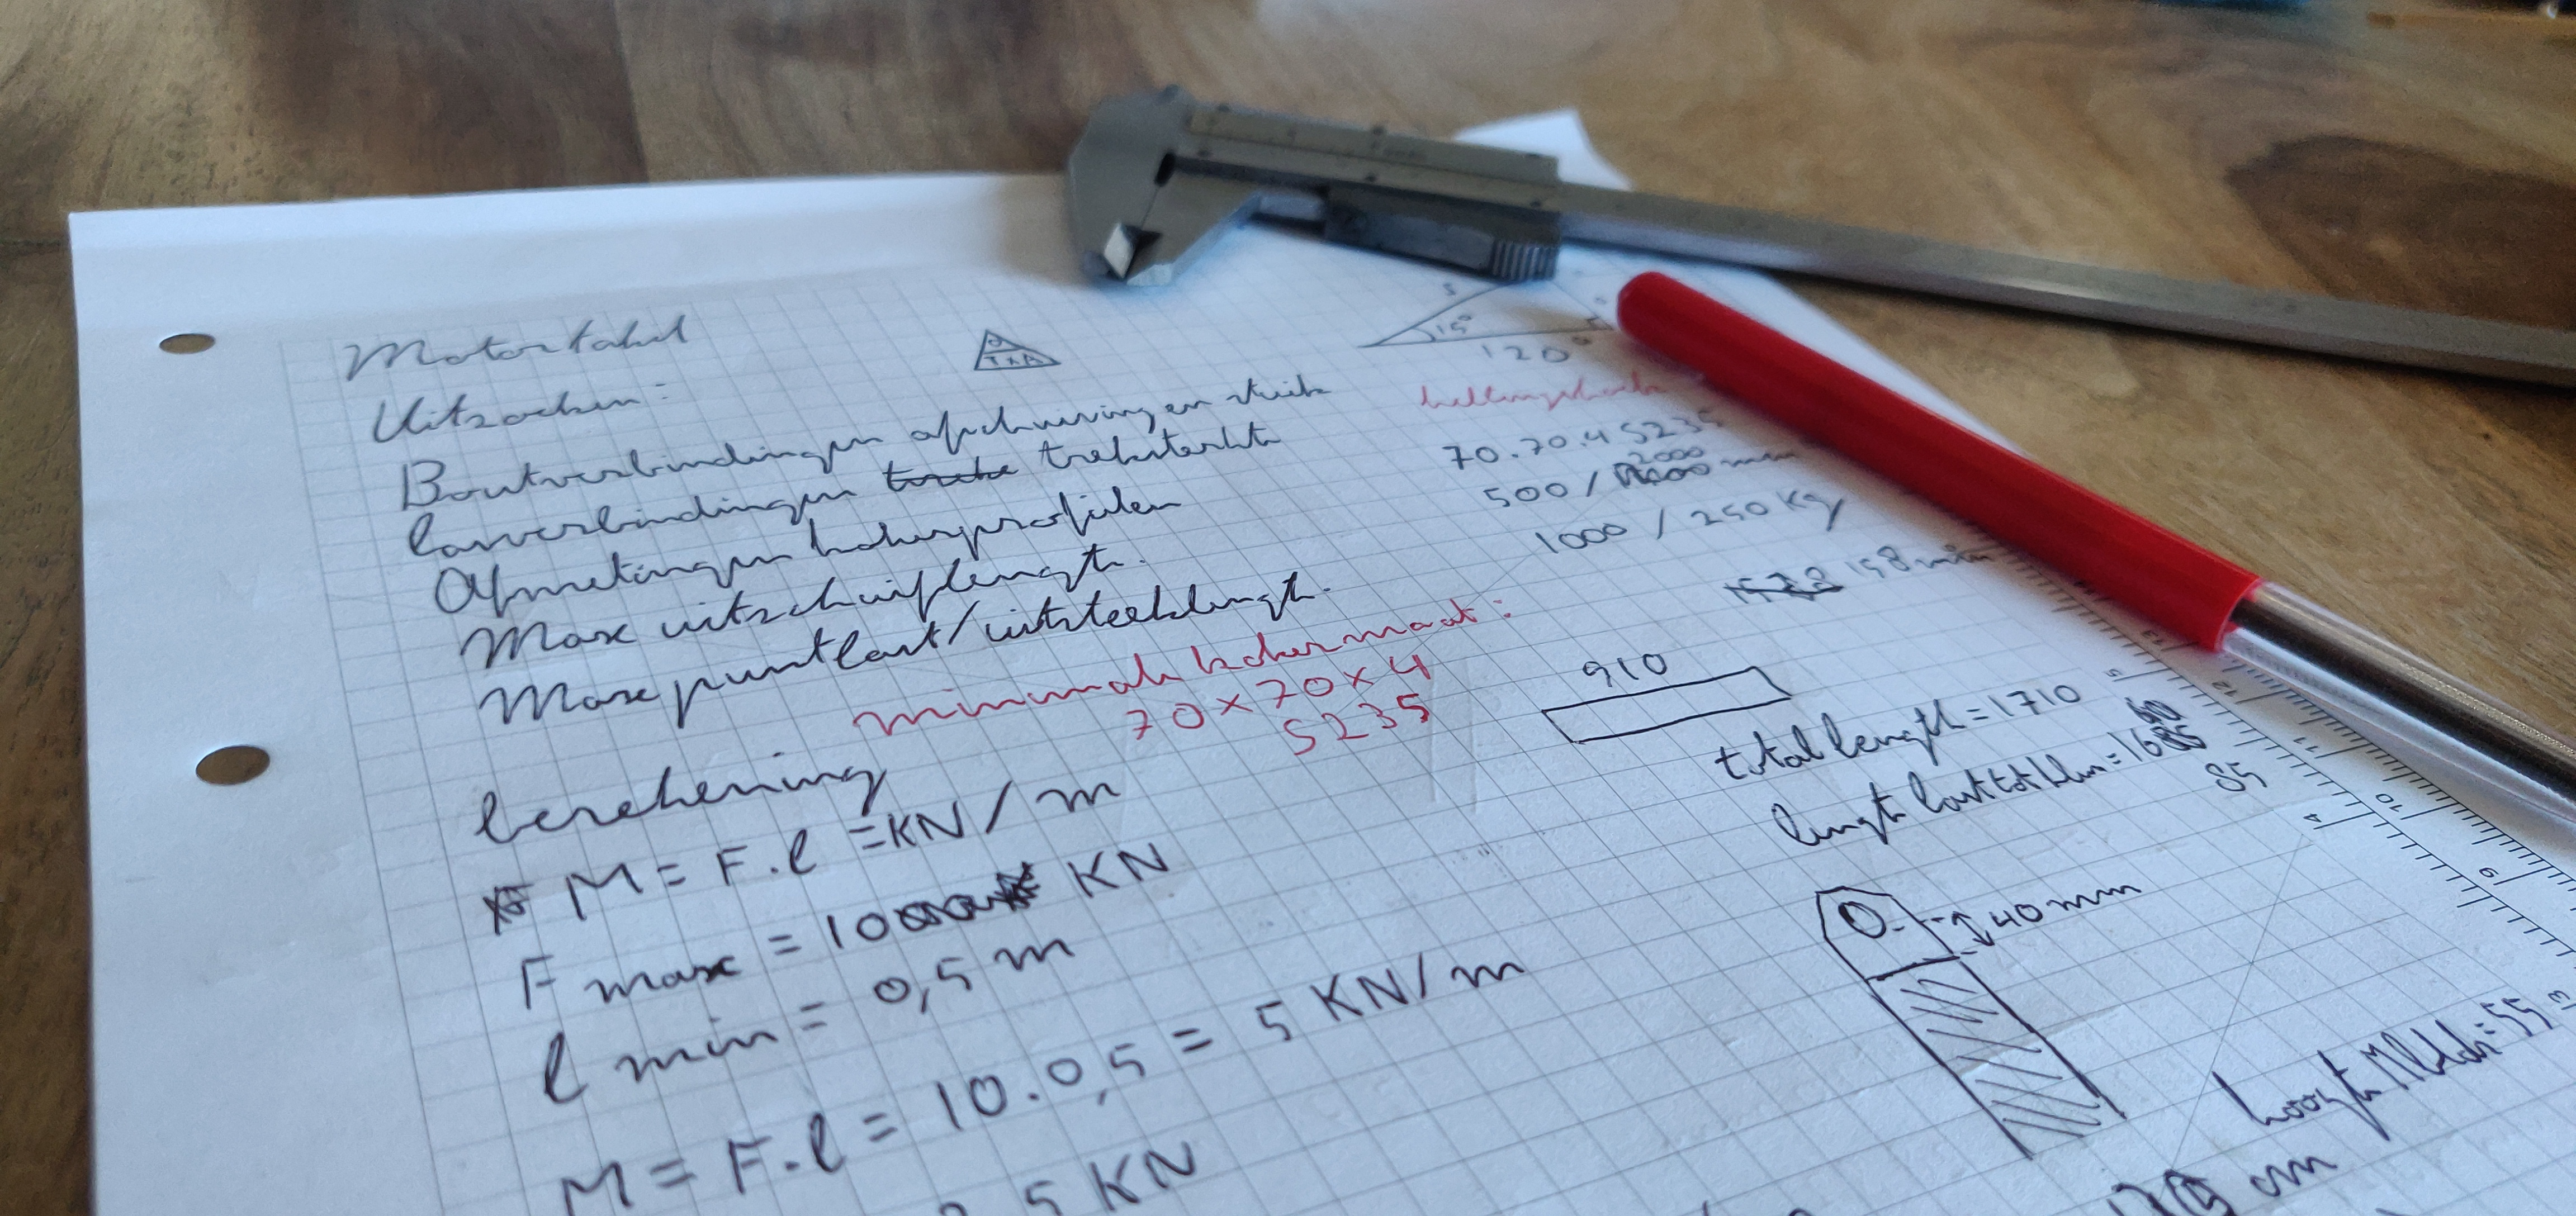 Motortakel
Uitzoeken:
Boutverbindingen afschuiving en stuik
lasverbindingen treksterkte
Afmetingen kokerprofielen
Max uitschuiflengte.
Max puntlast/uitsteeklengte.
minimale kokermaat:
70 x 70 x 4
S235
berekening
M = F.l = KN/m
F max = 10 KN
l min = 0,5 m
M = F.l = 10.0,5 = 5 KN/m
5 KN
TxA
15°
120°
70.70.4 S235
500 / 2000 mm
1000 / 250 Kg
158 mm
910
total length = 1710
60
85
40 mm
cm
13
12
11
10
9
5
4